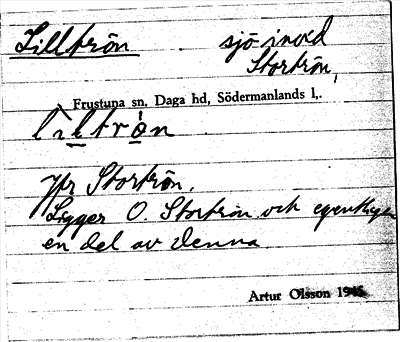 Lilltrön sjö invid
Stortrön,
Frustuna sn, Daga hd, Södermanlands l,.
liltrön
Jfr Stortrön.
Ligger O. Stortrön och egentligen
en del av denna.
Artur Olsson 1945